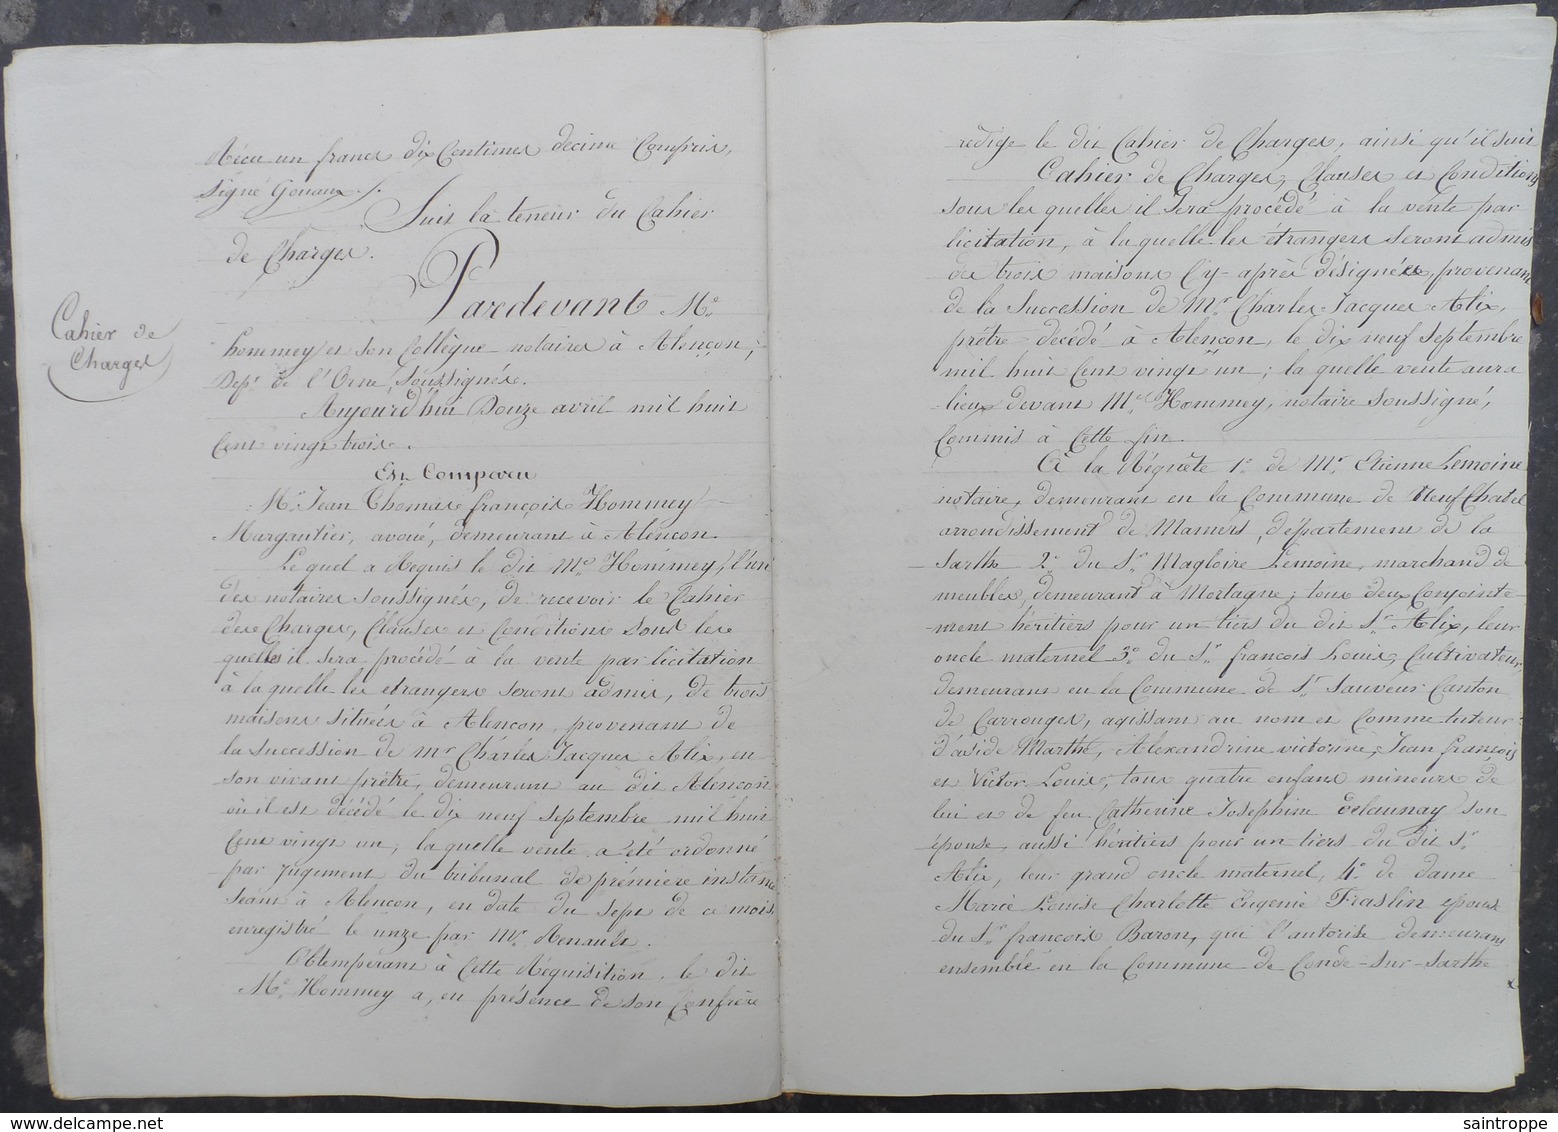 Récu un franc dix Centimes decime Compris,
Signé Gouaux
Suit la teneur du Cahier
de Charges.
Cahier de
Charges
Pardevant Me.
hommey et son Collègue notaires à Alençon,
Dept. de l'Orne, Soussignés.
Aujourd'hui Douze avril mil huit
Cent vingt trois.
Est Comparu
Me. Jean Thomas françois Hommey
Margantier, avoué, demeurant à Alençon.
Le quel a Requis le dit Me. Hommey, l'un
des notaires soussignés, de recevoir le Cahier
des Charges, Clauses et Conditions sous les
quelles il sera procédé à la vente par licitation
à la quelle les etrangers seront admis, de trois
maisons situées à Alençon, provenant de
la succession de mr Charles Jacques Alix, en
son vivant prêtre, demeurant au dit Alençon
où il est décédé le dix neuf septembre mil huit
Cent vingt un, la quelle vente a été ordonné
par Jugement du tribunal de prémière instance
séant à Alencon, en date du sept de ce mois,
enregistré le onze par Mr. Renault.
Obtempérant à Cette Réquisition, le dit
Me. Hommey a, en présence de son Confrère
redigé le dit Cahier de Charges, ainsi qu'il suit
Cahier de Charges, Clauses et Conditions
sous les quelles il Sera procédé à la vente par
licitation, à la quelle les étrangers seront admis
des trois maisons Cy-après désignées, provenant
de la Succession de Mr. Charles Jacques Alix,
prêtre décédé à Alencon, le dix neuf Septembre
mil huit Cent vingt un; la quelle vente aura
lieu devant Me. Hommey, notaire soussigné,
Commis à Cette fin.
A la Réquête 1o. de Mr. Etienne Lemoine
notaire, demeurant en la Commune de Neufchatel
arrondissement de Mamers, département de la
Sarthe 2o. du Sr. Magloire Lemoine, marchand de
meubles, demeurant à Mortagne; tous deux Conjointe-
ment héritiers pour un tiers du dit Sr. Alix, leur
oncle maternel 3o. du Sr. françois Louis, Cultivateur,
demeurant en la Commune de St. Sauveur Canton
de Carrouges, agissant au nom et Comme tuteur
d'avide Marthe, Alexandrine victorine, Jean françois
et Victor Louis, tous quatre enfans mineurs de
lui et de feu Catherine Josephine Delaunay son
épouse, aussi héritiers pour un tiers du dit Sr.
Alix, leur grand oncle maternel, 4o. de dame
Marie Louise Charlotte Eugenie Fraslin epouse
du Sr. françois Baron, qui l'autorise demeurant
ensemble en la Commune de Condé-sur-Sarthe
saintroppe